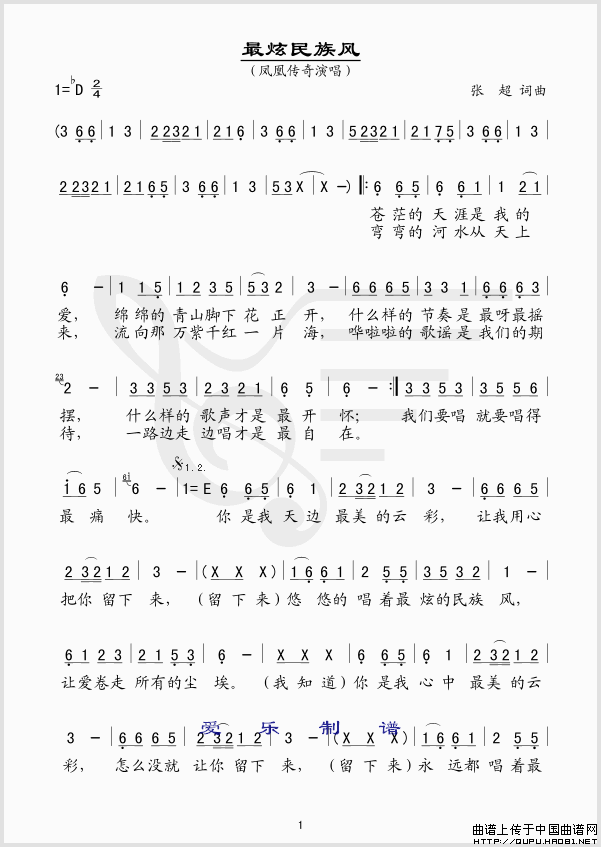 最炫民族风
（凤凰传奇演唱）
1=♭D 2/4
张 超 词曲
(3 6 6 | 1 3 | 2 2321 | 2 1 6 | 3 6 6 | 1 3 | 5 2321 | 2 1 7 5 | 3 6 6 | 1 3 |
2 2321 | 2 1 6 5 | 3 6 6 | 1 3 | 5 3 X | X -) ‖: 6 6 5 | 6 6 1 | 1 2 1 |
苍 茫的 天 涯是 我 的
弯 弯的 河 水从 天 上
6 - | 1 1 5 | 1 2 3 5 | 5 3 2 | 3 - | 3 3 5 3 | 6 6 6 1 | 6 6 6 3 |
爱， 绵 绵的 青山脚下 花 正 开， 什么样的 节奏是 最呀最摇
来， 流 向那 万紫千红 一 片 海， 哗啦啦的 歌谣是 我们的期
23 2 - | 3 3 5 3 | 2 3 2 1 | 6 5 | 6 - :‖ 3 3 5 3 | 3 5 5 6 |
摆， 什么样的 歌声才是 最 开 怀； 我们要唱 就要唱得
待， 一路边走 边唱才是 最 自 在。
1.2.
i 6 5 | 6 - | 1=E 6 6 5 | 6 1 | 2 3212 | 3 - | 6 6 6 5 |
最 痛 快。 你 是我 天 边 最美 的云 彩， 让我用心
2 3212 | 3 - | (X X X) | 1 6 6 1 | 2 5 5 | 3 5 3 2 | 1 - |
把你 留下 来，（留 下 来）悠 悠的 唱 着最 炫的民族 风，
6 1 2 3 | 2 1 5 3 | 6 - | X X X | 6 6 5 | 6 1 | 2 3212 |
让爱卷走 所有的尘 埃。（我 知 道）你 是我 心 中 最美 的云
爱 乐 制 谱
3 - | 6 6 6 5 | 2 3212 | 3 - | (X X X) | 1 6 6 1 | 2 5 5 |
彩， 怎么没就 让你 留下 来，（留 下 来）永 远都 唱 着最
1
曲谱上传于中国曲谱网
HTTP://QUPU.HAO81.NET